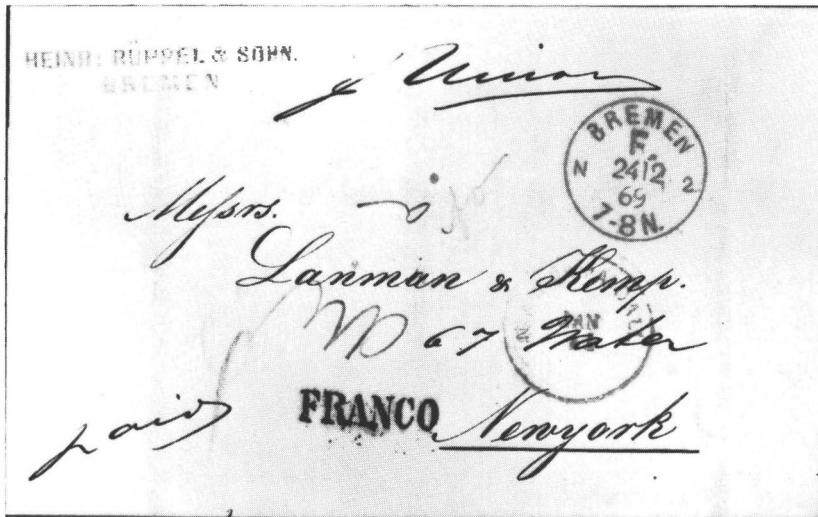 HEINR: RÜPPEL & SOHN.
BREMEN
p Union
BREMEN
F.
24 12
69
7-8 N.
N 2
Messrs.
Lanman & Kemp.
67 Water
paid
FRANCO
Newyork
JAN